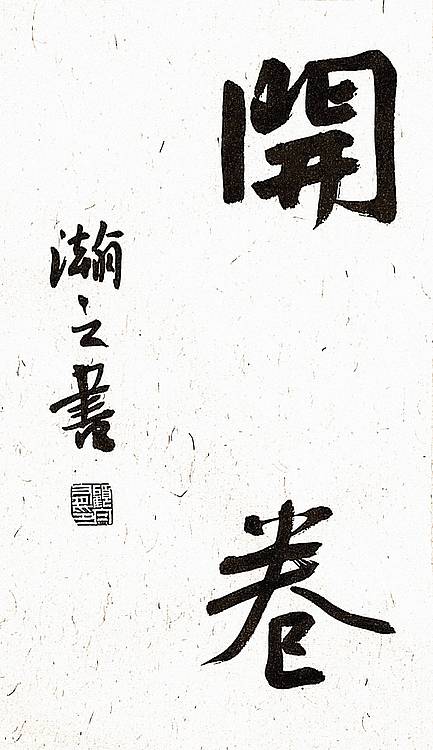 開卷
瀚之書